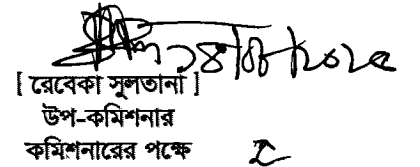 ১৪/০৮/২০২৫
[ রেবেকা সুলতানা ]
উপ-কমিশনার
কমিশনারের পক্ষে